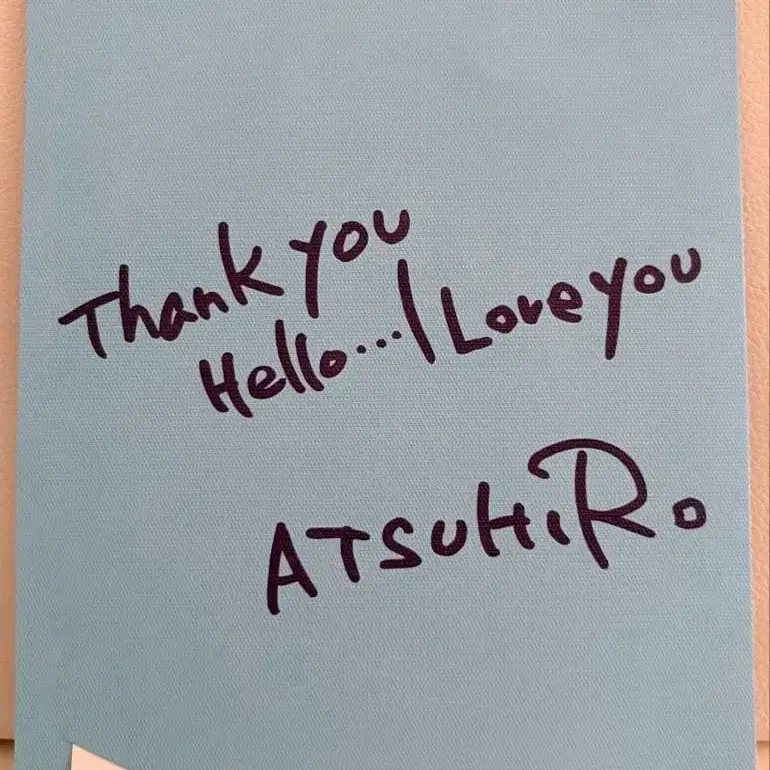 Thank you
Hello...I Love you
ATSUHiRo